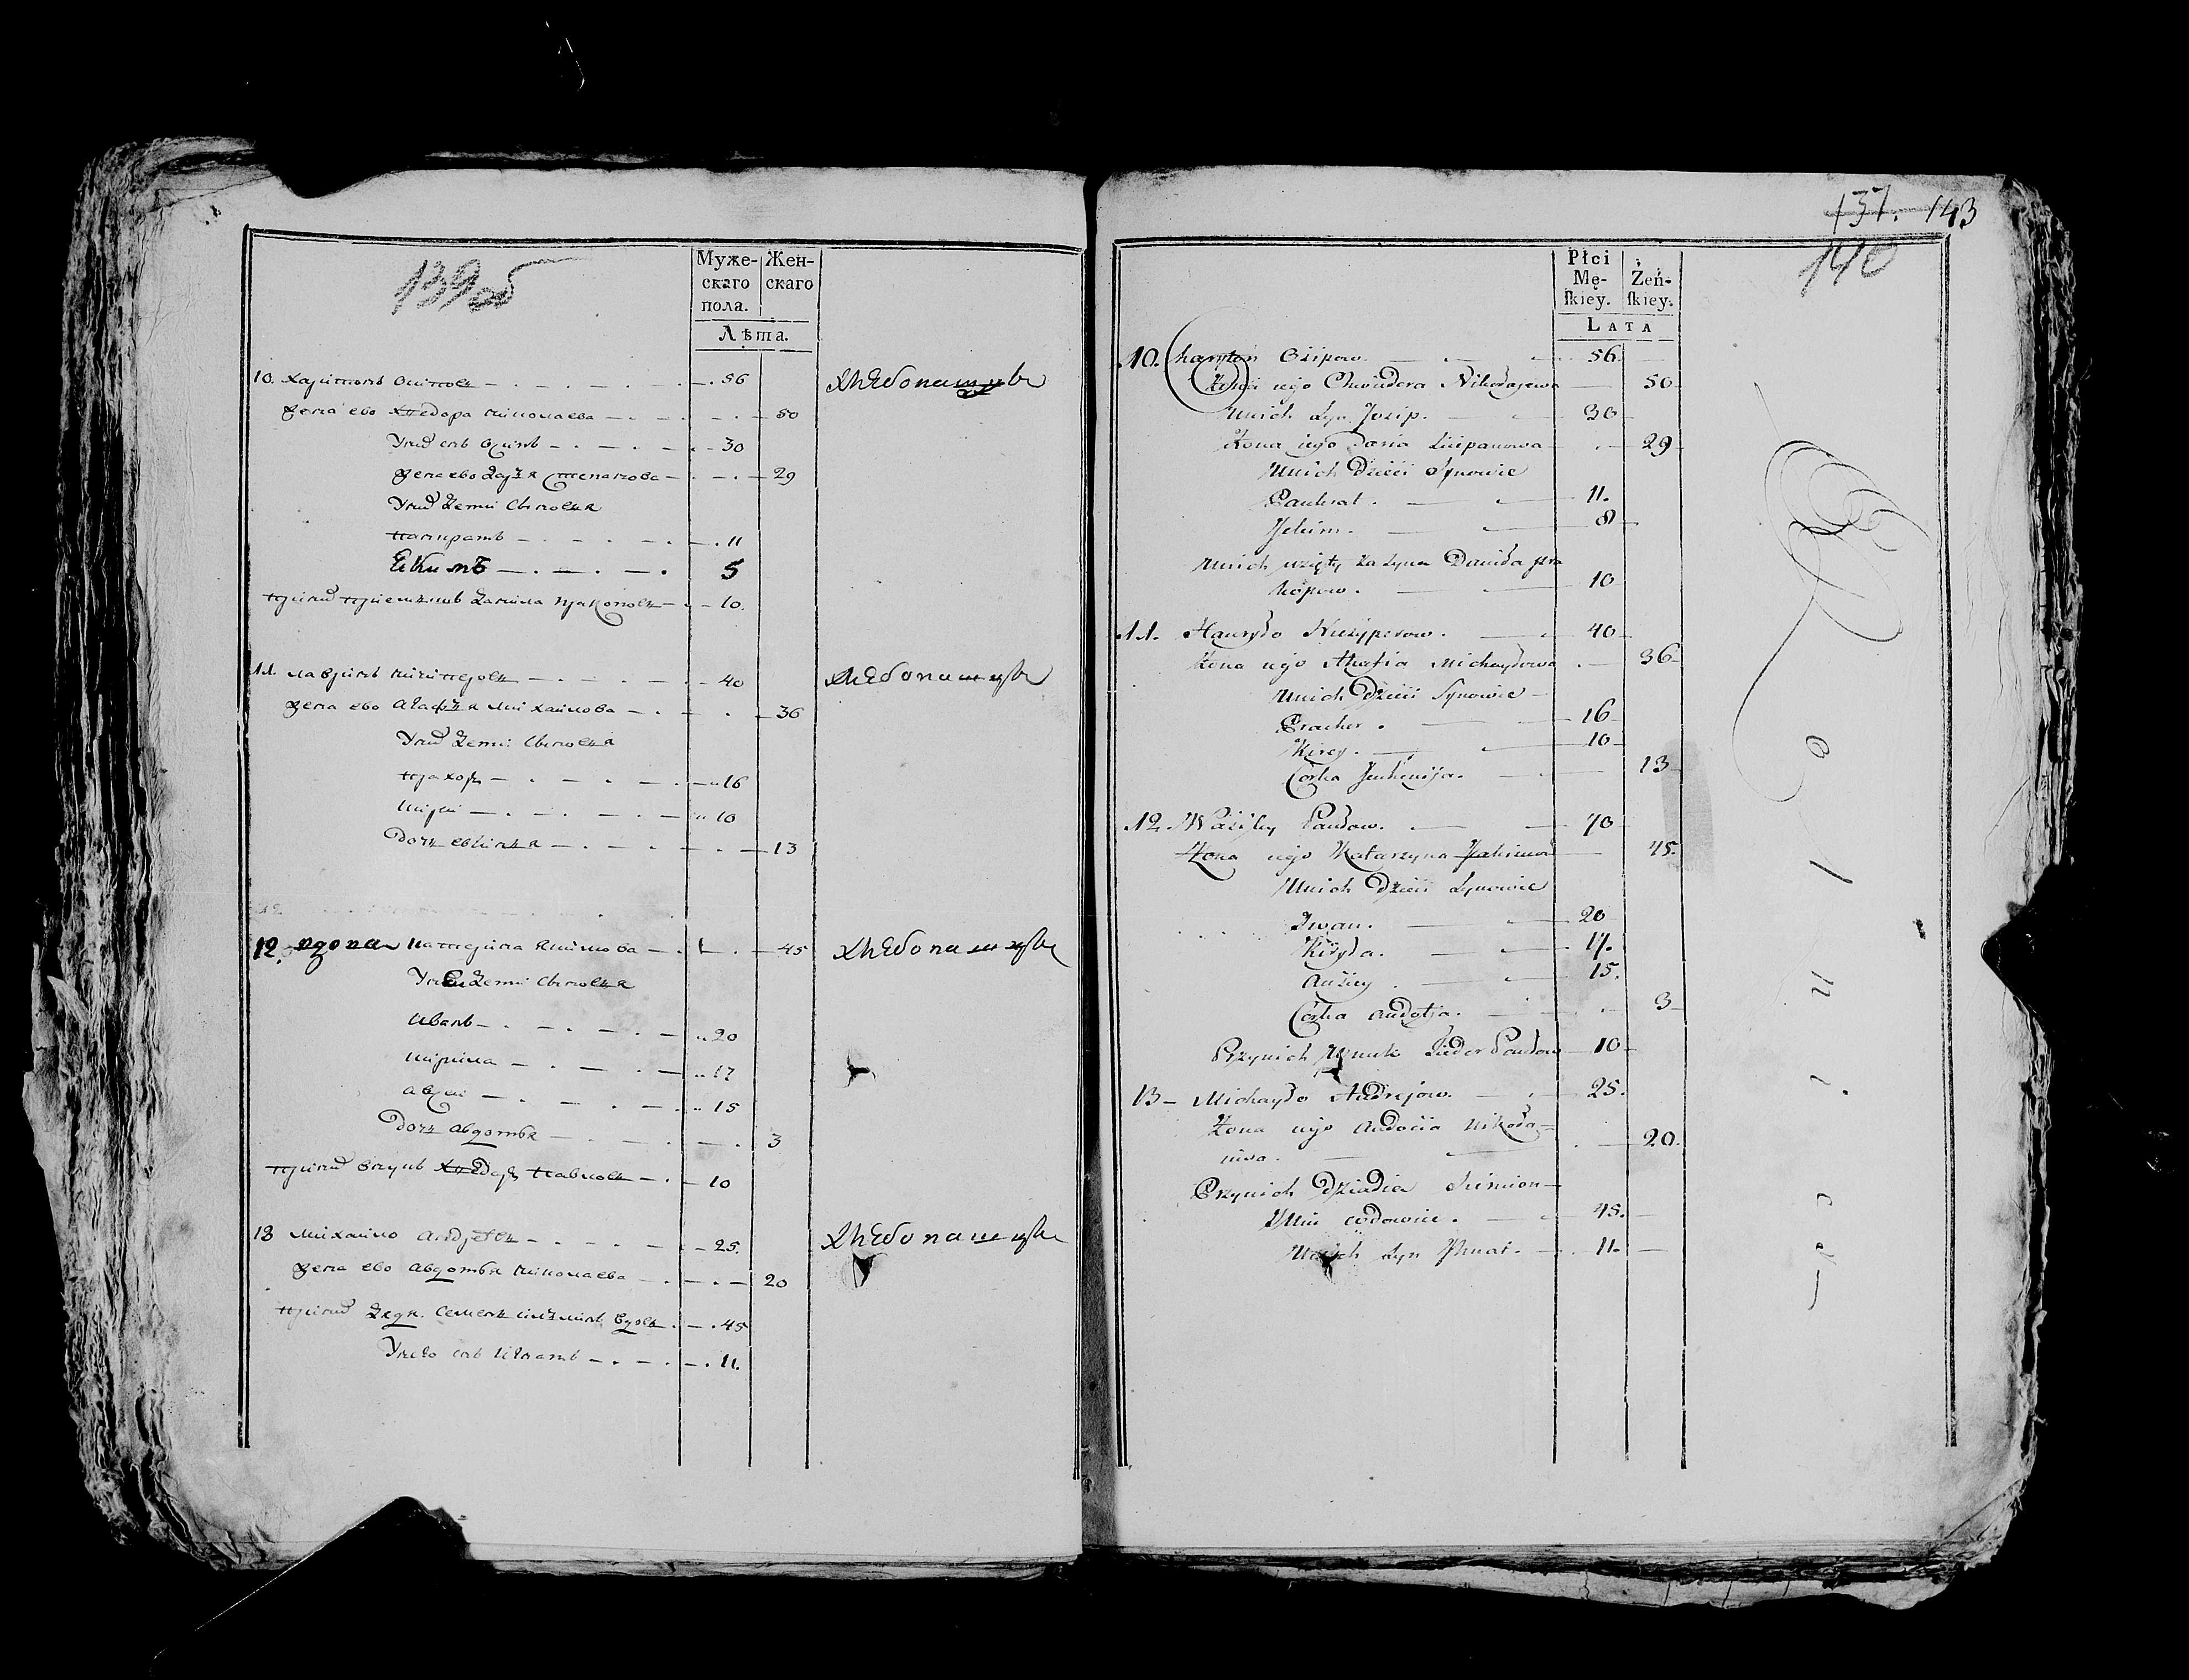 139об
Муже-
скаго
пола.
Жен-
скаго
Лѣта.
10. Харитонъ Осиповъ 56 хлебопашцы
жена ево Хведора Николаева 50
У них снъ Осипъ 30
жена ево Дарья Степанова 29
У них дети сыновья
Панкратъ 11
Екимъ 5
При них приемышъ Данила Пракоповъ 10.
11. Лавринъ Ничипоровъ 40 хлебопашцы
жена ево Агафья Михайлова 36
У них дети сыновья
Прахоръ 16
Кирей 10
Дочь Евгинья 13
12. вдова Катерина Якимова 45 хлебопашцы
У ней дети сыновья
Иванъ 20
Кирила 17
Авсей 15
Дочь Авдотья 3
При них внукъ Хведоръ Павловъ 10
13 Михайло Андреевъ 25. хлебопашцы
жена ево Авдотья Николаева 20
При них дядя Семенъ 45
У нево снъ Игнатъ 11.
137. 143
140
Płci
Mę-
ſkiey.
Żeń-
ſkiey.
LATA
10. Charyton Osipow. 56
Żona iego Chwiadora Nikołajewa 50
Unich Syn Josip. 30
Żona iego Daria Sciepanowa 29
Unich Dzieci Synowie
Pankrat. 11.
Jekim. 8
Unich wzięty za Syna Daniła Pra
kopow. 10
11. Hauryło Niczyperow. 40
Żona iego Ahafia Michayłowa 36
Unich Dzieci Synowie
Pracher. 16
Kirey. 10
Corka Jeuhenija. 13
12. Wasiley Pawłow. 70
Żona iego Katarzyna Jakimowa 45.
Unich Dzieci Synowie
Iwan. 20
Kiryła. 17.
Auśiey. 15.
Corka Audotja. 3
Przynich Wnuk Fiedor Pawłow 10
13 Michayło Andrejow. 25.
Żona iego Audocia Nikoła=
iewa. 20.
Przynich Dziadia Siemion
45.
Unich Syn Ihnat. 11.
Rolnicy